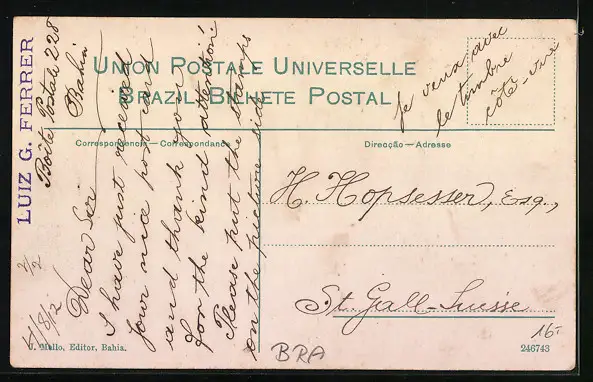 UNION POSTALE UNIVERSELLE
BRAZIL BILHETE POSTAL
Correspondencia — Correspondance
Direcção — Adresse
LUIZ G. FERRER
Boîte Postale 228
Bahia
4/8/12
Dear Sir
I have just received
your nice post card
and thank you
for the kind attention
Please put the stamps
on the picture side
je veux avec
le timbre
côté-vue
H. Hopsesser, Esq.,
St. Gall-Suisse
16-
BRA
J. Mello, Editor, Bahia.
246743